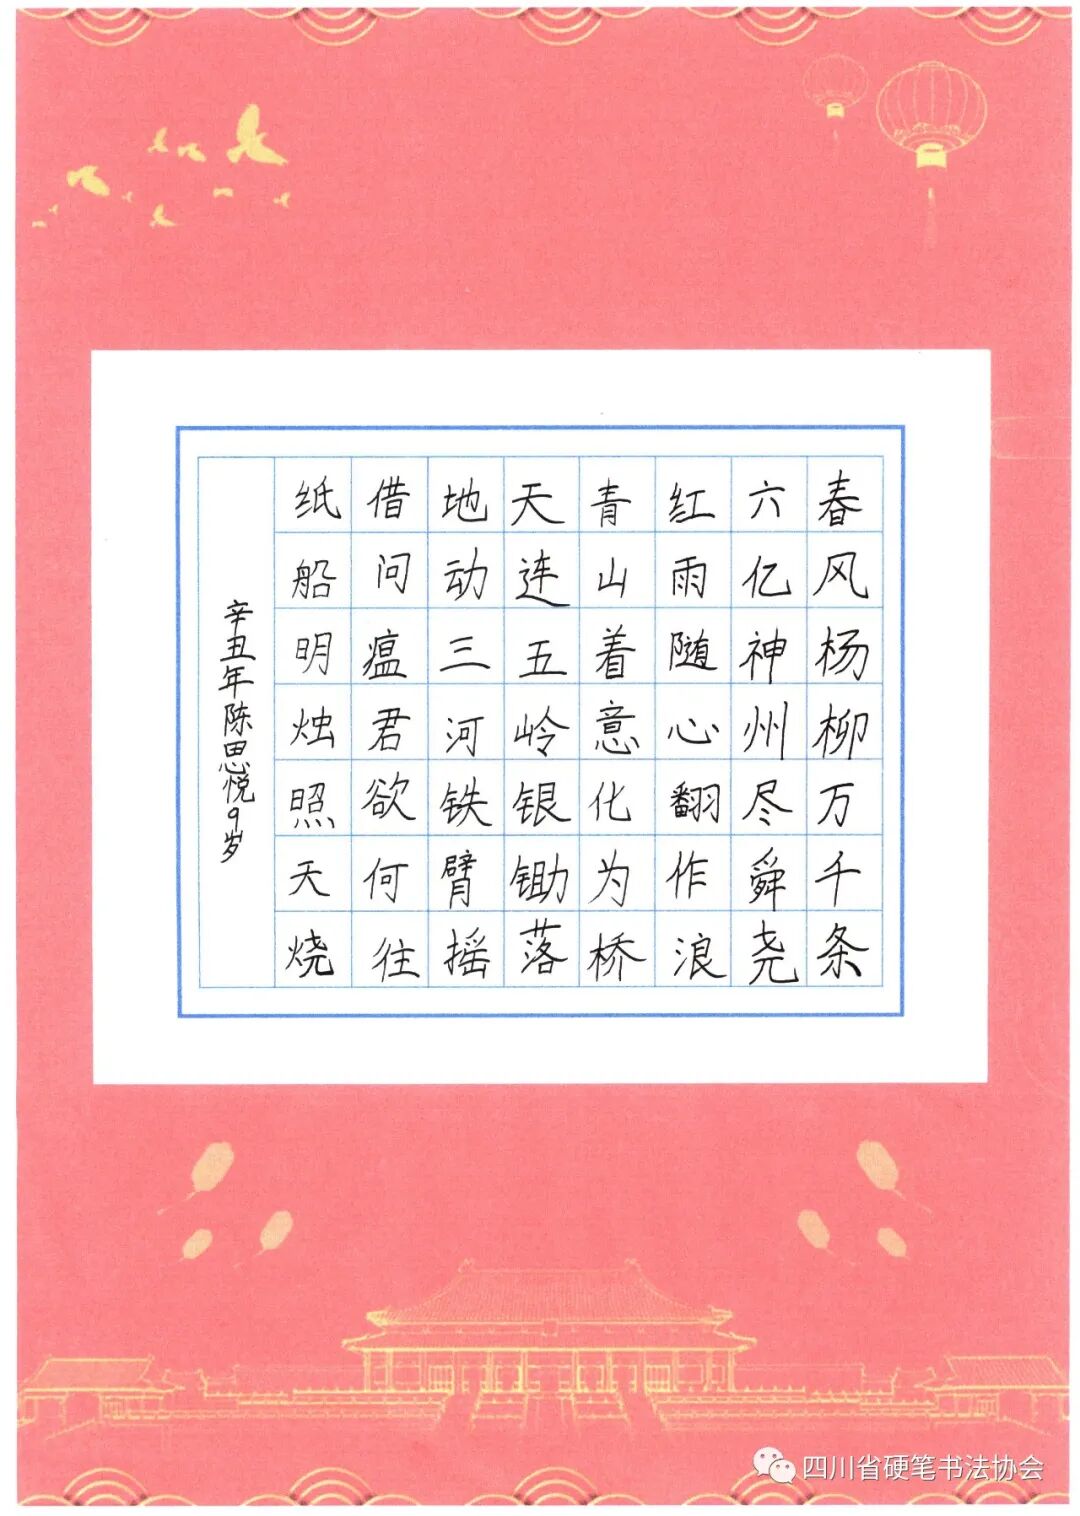 春风杨柳万千条
六亿神州尽舜尧
红雨随心翻作浪
青山着意化为桥
天连五岭银锄落
地动三河铁臂摇
借问瘟君欲何往
纸船明烛照天烧
辛丑年陈思悦9岁
四川省硬笔书法协会